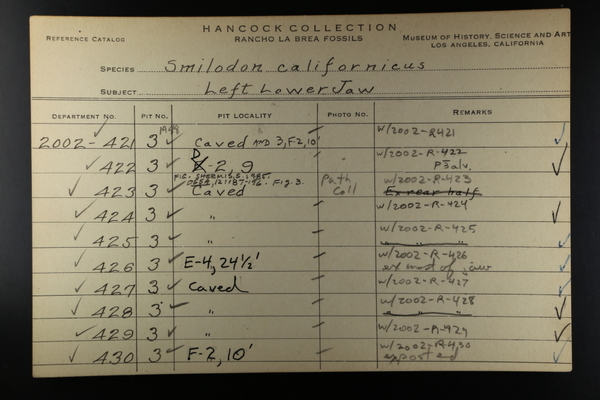 HANCOCK COLLECTION
REFERENCE CATALOG RANCHO LA BREA FOSSILS MUSEUM OF HISTORY, SCIENCE AND ART
LOS ANGELES, CALIFORNIA
SPECIES Smilodon californicus
SUBJECT Left Lower Jaw
DEPARTMENT NO. PIT NO. PIT LOCALITY PHOTO NO. REMARKS
2002-421 3 Caved AND 3, F-2, 10' W/2002-R421
422 3 D-2, 9 W/2002-R-422
P3 alv.
FIC. SHERMIS, S. 1985.
Fig. 3.
423 3 Caved Path Coll W/2002-R-423
Ex rear half
424 3 " W/2002-R-424
425 3 " W/2002-R-425
" " "
426 3 E-4, 24½' W/2002-R-426
ext mod of jaw
427 3 Caved W/2002-R-427
428 3 " W/2002-R-428
" " "
429 3 " W/2002-R-429
430 3 F-2, 10' W/2002-R-430